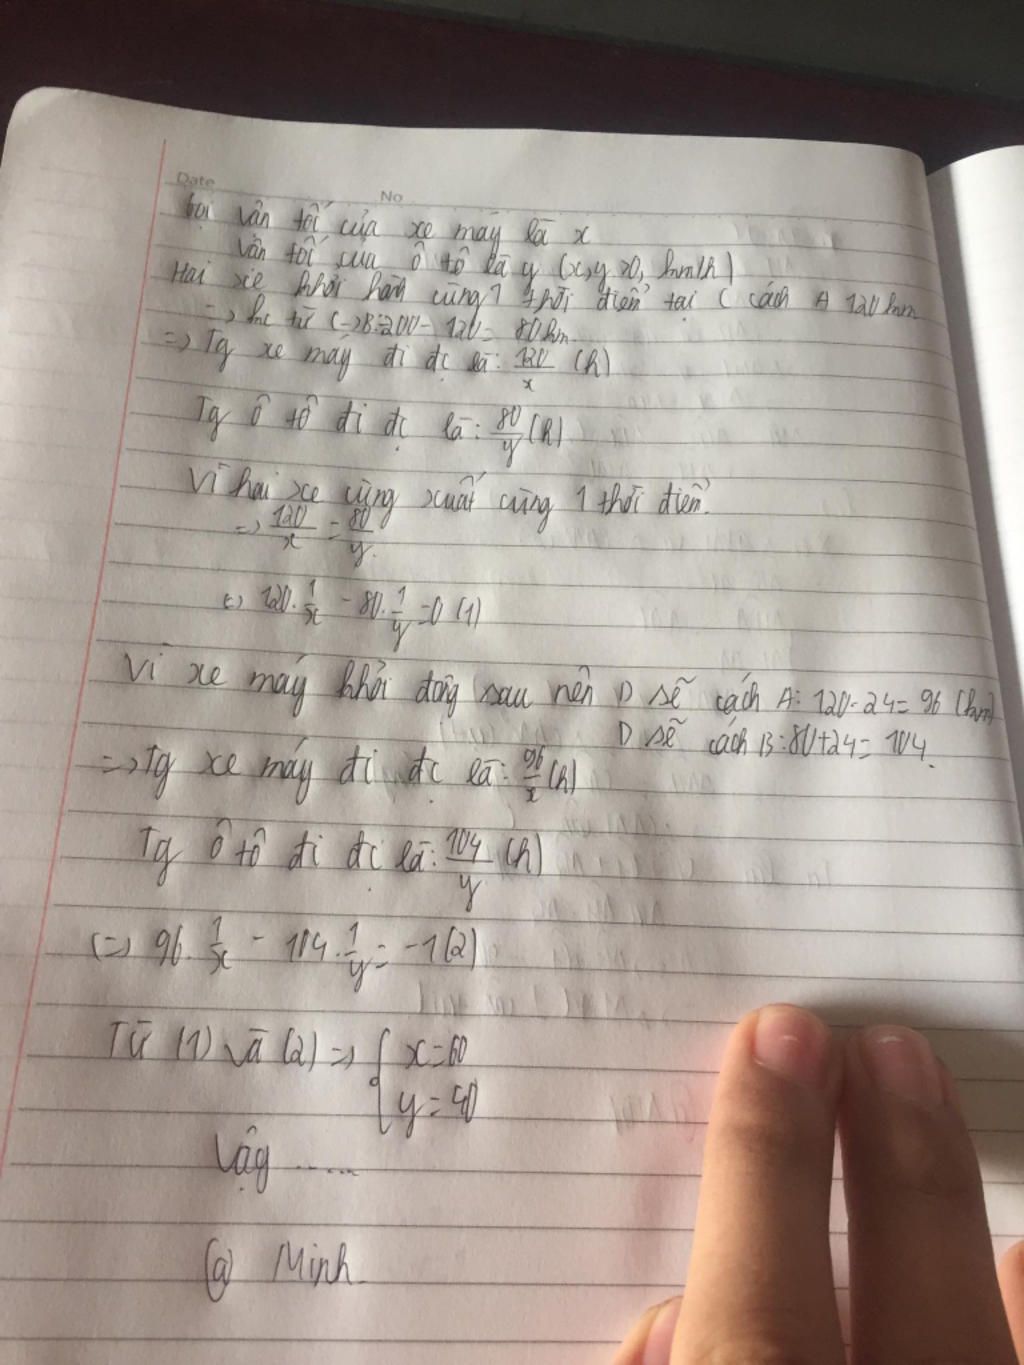 Date
No
Gọi vân tốc của xe máy là x
vân tốc của ô tô là y (x,y >0, km/h)
Hai xe khởi hành cùng 1 thời điểm tại C cách A 120 km
=> kc từ C->B: 200 - 120 = 80 km
=> Tg xe máy đi đc là: 120/x (h)
Tg ô tô đi đc là: 80/y (h)
Vì hai xe cùng xuất cùng 1 thời điểm.
=> 120/x = 80/y.
<=> 120. 1/x - 80. 1/y = 0 (1)
Vì xe máy khởi động sau nên D sẽ cách A: 120 - 24 = 96 (km)
D sẽ cách B: 80 + 24 = 104.
=> Tg xe máy đi đc là: 96/x (h)
Tg ô tô đi đc là: 104/y (h)
<=> 96. 1/x - 104. 1/y = -1 (2)
Từ (1) và (2) => { x = 60
y = 40
Vậy ......
@ Minh